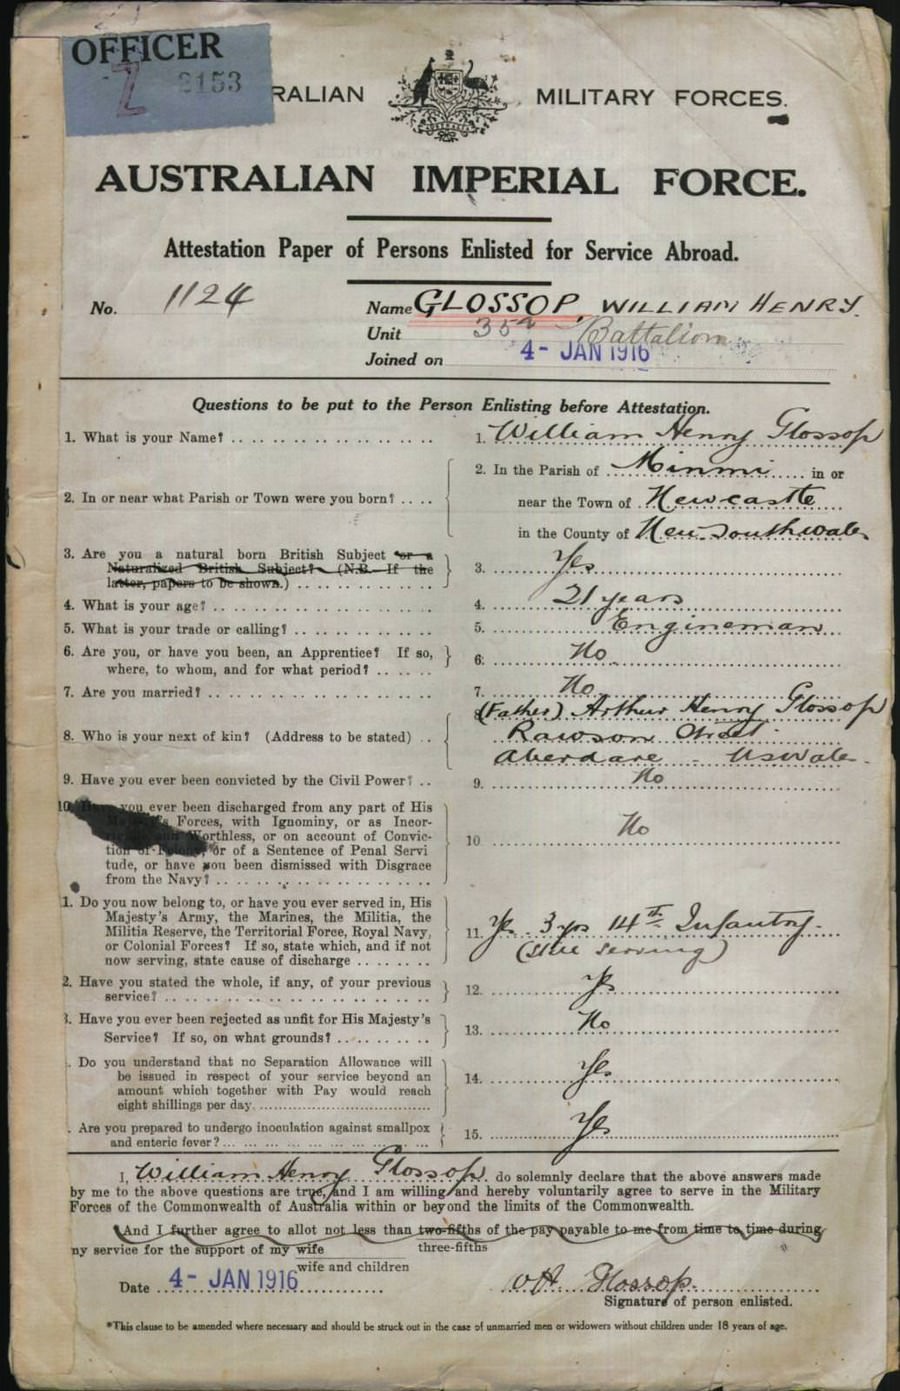 OFFICER
Z 2153
RALIAN MILITARY FORCES.
AUSTRALIAN IMPERIAL FORCE.
Attestation Paper of Persons Enlisted for Service Abroad.
No. 1124 Name GLOSSOP, WILLIAM HENRY.
Unit 35th Battalion
Joined on 4- JAN 1916
Questions to be put to the Person Enlisting before Attestation.
1. What is your Name? 1. William Henry Glossop
2. In or near what Parish or Town were you born? 2. In the Parish of Minmi in or
near the Town of Newcastle
in the County of New Southwales
3. Are you a natural born British Subject or a
Naturalized British Subject? (N.B.—If the
latter, papers to be shown.) 3. Yes
4. What is your age? 4. 21 years
5. What is your trade or calling? 5. Engineman
6. Are you, or have you been, an Apprentice? If so,
where, to whom, and for what period? 6. No
7. Are you married? 7. No
8. Who is your next of kin? (Address to be stated) 8. (Father) Arthur Henry Glossop
Rawson Street
Aberdare - NSWales.
9. Have you ever been convicted by the Civil Power? 9. No
10. Have you ever been discharged from any part of His
Majesty's Forces, with Ignominy, or as Incor-
Worthless, or on account of Convic-
tion of Felony, or of a Sentence of Penal Servi
tude, or have you been dismissed with Disgrace
from the Navy? 10 No
1. Do you now belong to, or have you ever served in, His
Majesty's Army, the Marines, the Militia, the
Militia Reserve, the Territorial Force, Royal Navy,
or Colonial Forces? If so, state which, and if not
now serving, state cause of discharge 11. Yes. 3 yrs 14th Infantry.
(still serving)
2. Have you stated the whole, if any, of your previous
service? 12. Yes
3. Have you ever been rejected as unfit for His Majesty's
Service? If so, on what grounds? 13. No
. Do you understand that no Separation Allowance will
be issued in respect of your service beyond an
amount which together with Pay would reach
eight shillings per day. 14. Yes
. Are you prepared to undergo inoculation against smallpox
and enteric fever? 15. Yes
I, William Henry Glossop. do solemnly declare that the above answers made
by me to the above questions are true, and I am willing and hereby voluntarily agree to serve in the Military
Forces of the Commonwealth of Australia within or beyond the limits of the Commonwealth.
And I further agree to allot not less than two-fifths of the pay payable to me from time to time during
my service for the support of my wife three-fifths
wife and children
Date 4- JAN 1916 WH. Glossop.
Signature of person enlisted.
*This clause to be amended where necessary and should be struck out in the case of unmarried men or widowers without children under 18 years of age.